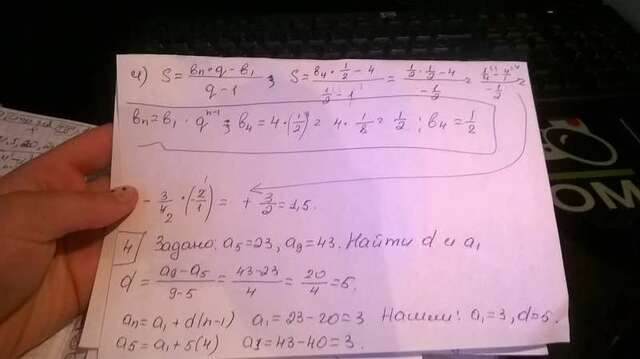 4) S = (bn·q − b1)/(q − 1) ; S = (b4·1/2 − 4)/(1/2 − 1) = (1/2·1/2 − 4)/(−1/2) =
bn = b1·q^(n−1) ; b4 = 4·(1/2)³ = 4·1/8 = 1/2 ; b4 = 1/2
− 3/4 · (−2/1) = + 3/2 = 1,5.
4 Задано: a5 = 23, a9 = 43. Найти d и a1
d = (a9 − a5)/(9 − 5) = (43 − 23)/4 = 20/4 = 5.
an = a1 + d(n−1) a1 = 23 − 20 = 3 Нашли: a1 = 3, d = 5.
a5 = a1 + 5(4) a1 = 43 − 40 = 3.
OM